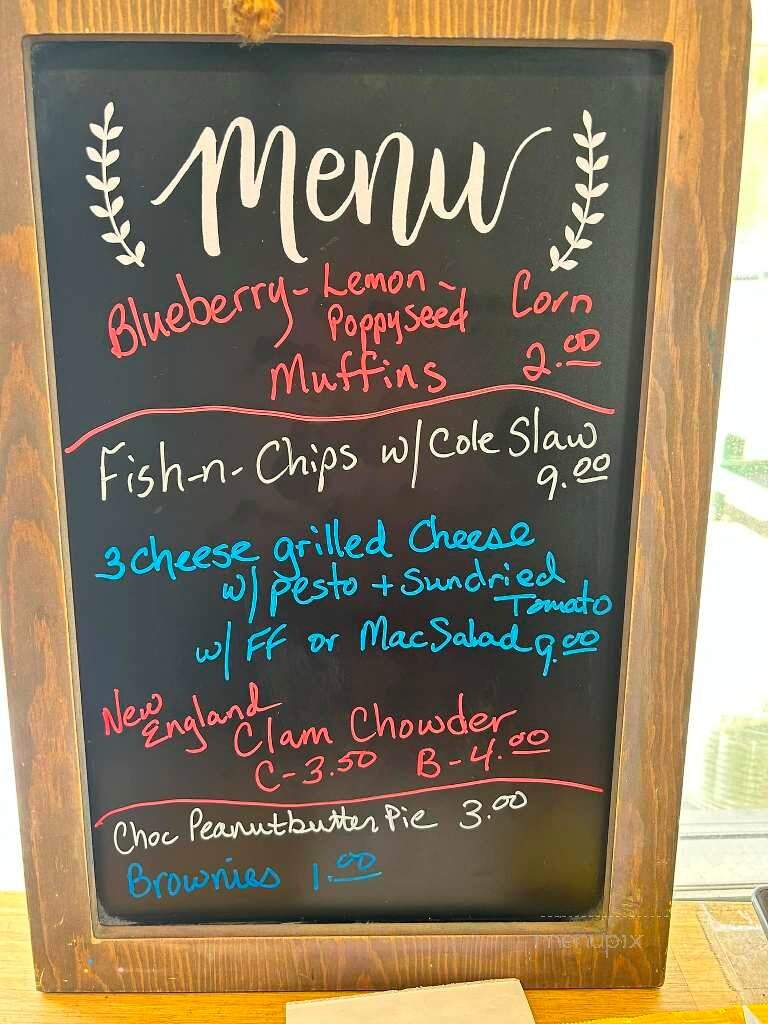 Menu
Blueberry - Lemon - Poppyseed Corn
Muffins 2.00
Fish-n-Chips w/ Cole Slaw
9.00
3 cheese grilled Cheese
w/ pesto + Sundried
Tomato
w/ FF or Mac Salad 9.00
New England Clam Chowder
C-3.50 B-4.00
Choc Peanutbutter Pie 3.00
Brownies 1.00
menupix